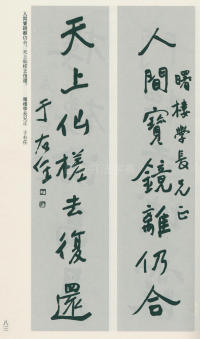 曙樓學長兄正
人間寶鏡離仍合
天上仙槎去復還
于右任
人間寶鏡離仍合，天上仙槎去復還。 曙樓學長兄正 于右任
八三